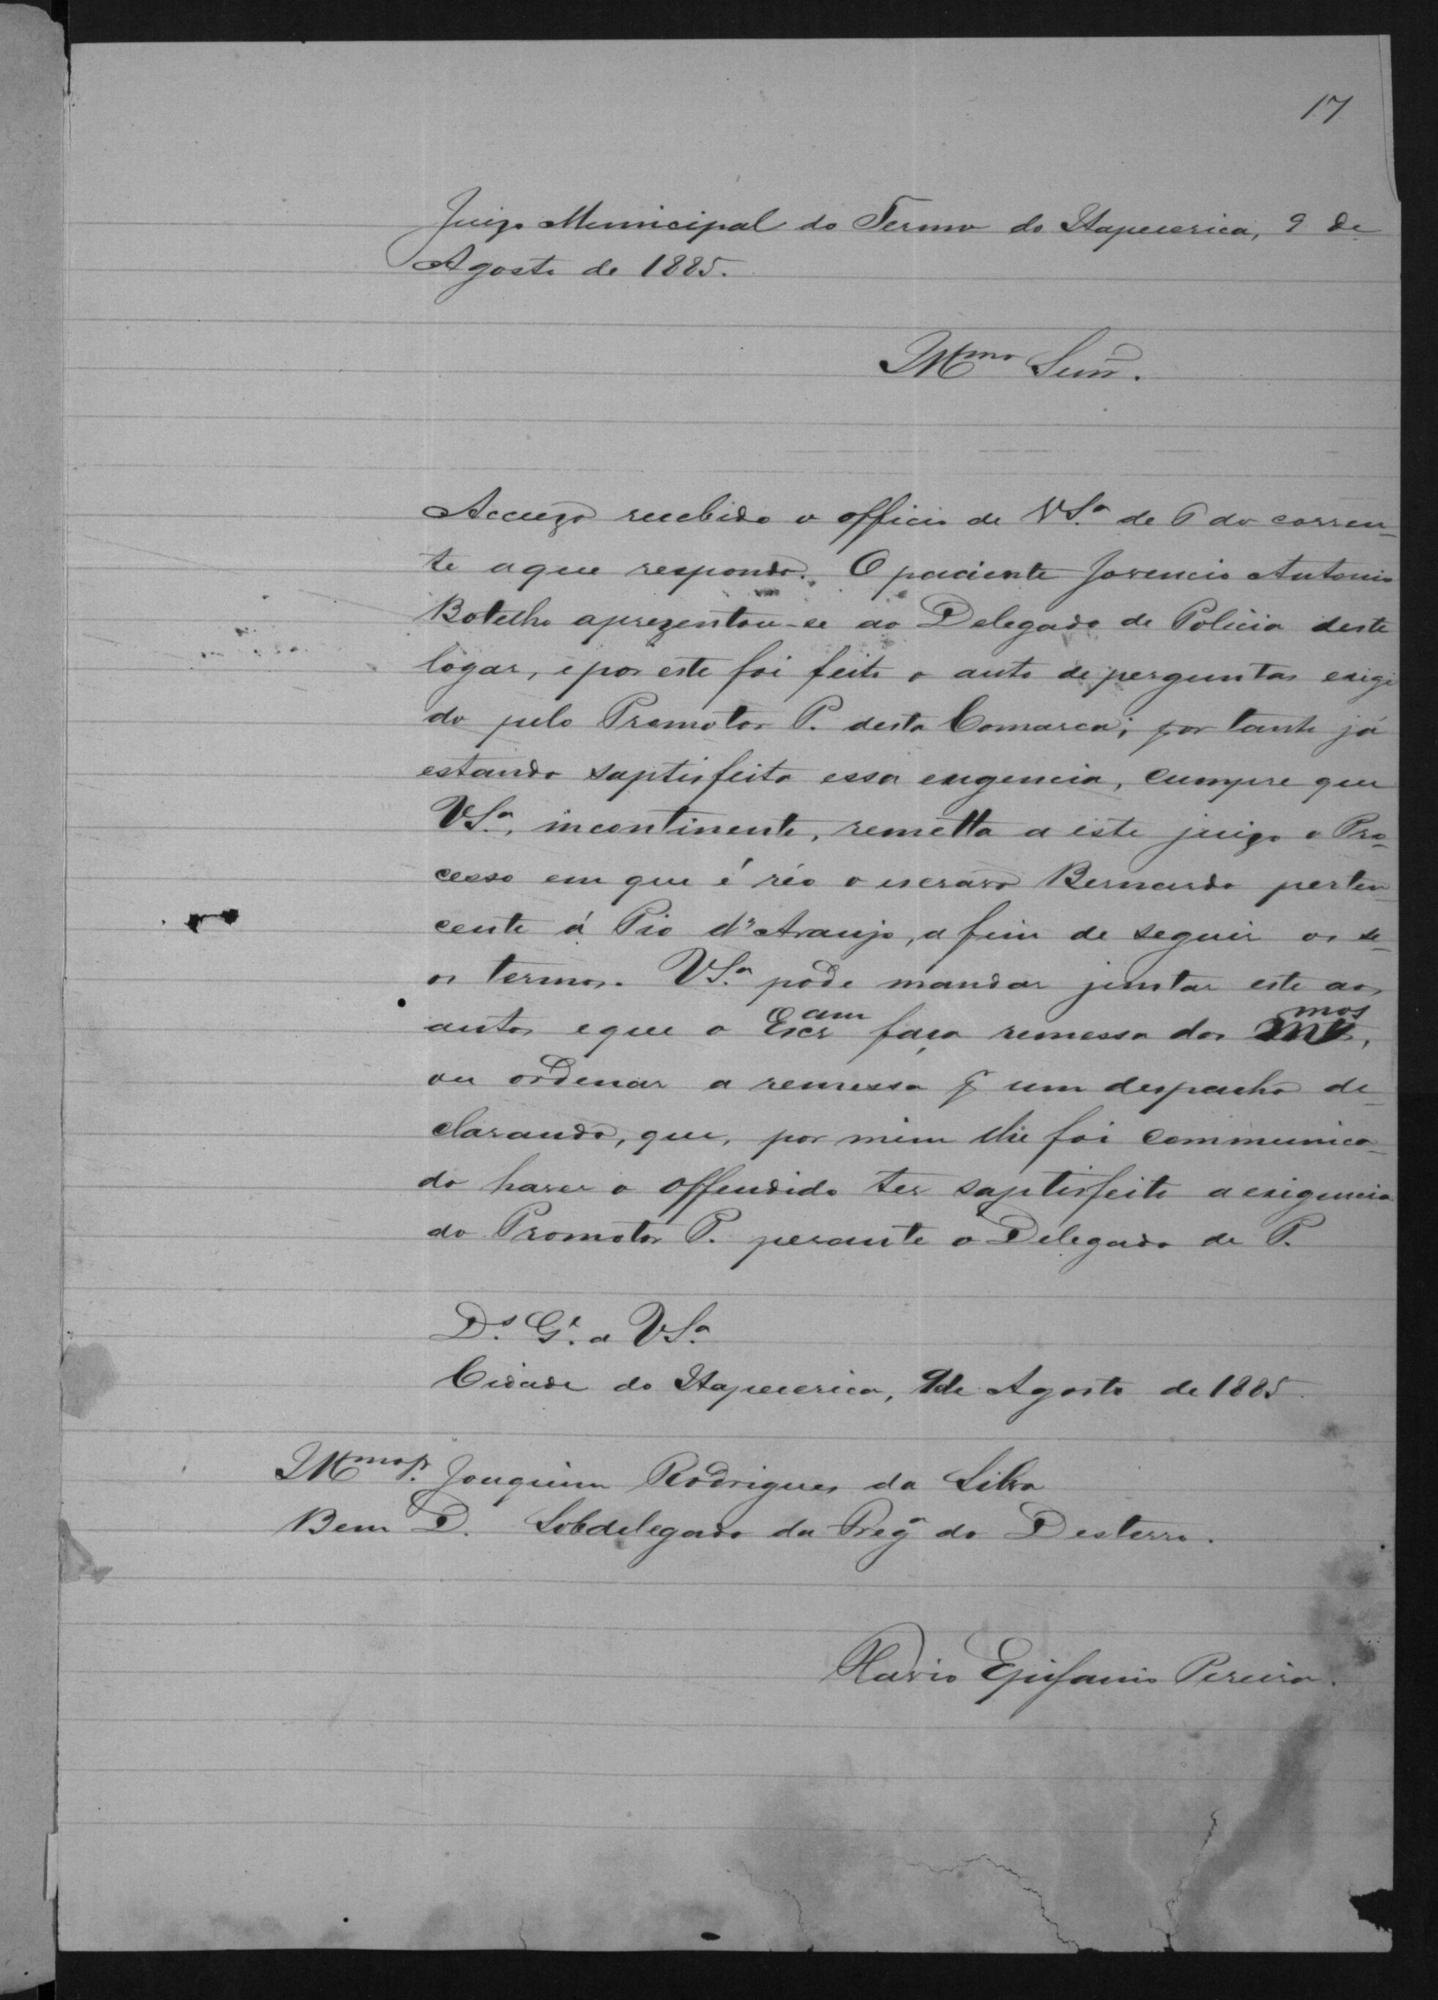 17
Juizo Municipal do Termo de Itapecerica, 9 de
Agosto de 1885.
Illmo Senr.
Accuzo recebido o officio de VSa. de 6 do corren-
te a que respondo. O paciente Jovencio Antonio
Botelho aprezentou-se ao Delegado de Policia deste
logar, e por este foi feito o auto de perguntas exigi
do pelo Promotor P. desta Comarca; por tanto já
estando saptisfeita essa exigencia, cumpre que
VSa., incontinente, remetta a este juizo o Pro-
cesso em que é réo o escravo Bernardo perten
cente á Pio d'Araujo, a fim de seguir os se-
os termos. VSa. pode mandar juntar este aos
autos e que o Escram faça remessa dos mmos,
ou ordenar a remessa p um despacho de-
clarando, que, por mim lhe foi communica-
do haver o offendido ter saptisfeito a exigencia
do Promotor P. perante o Delegado de P.
Ds. Ge. a VSa.
Cidade de Itapecerica, 9 de Agosto de 1885.
Illmo Sr. Joaquim Rodrigues da Silva
Bem D. Subdelegado da Frega do Desterro.
Flavio Epifanio Pereira.